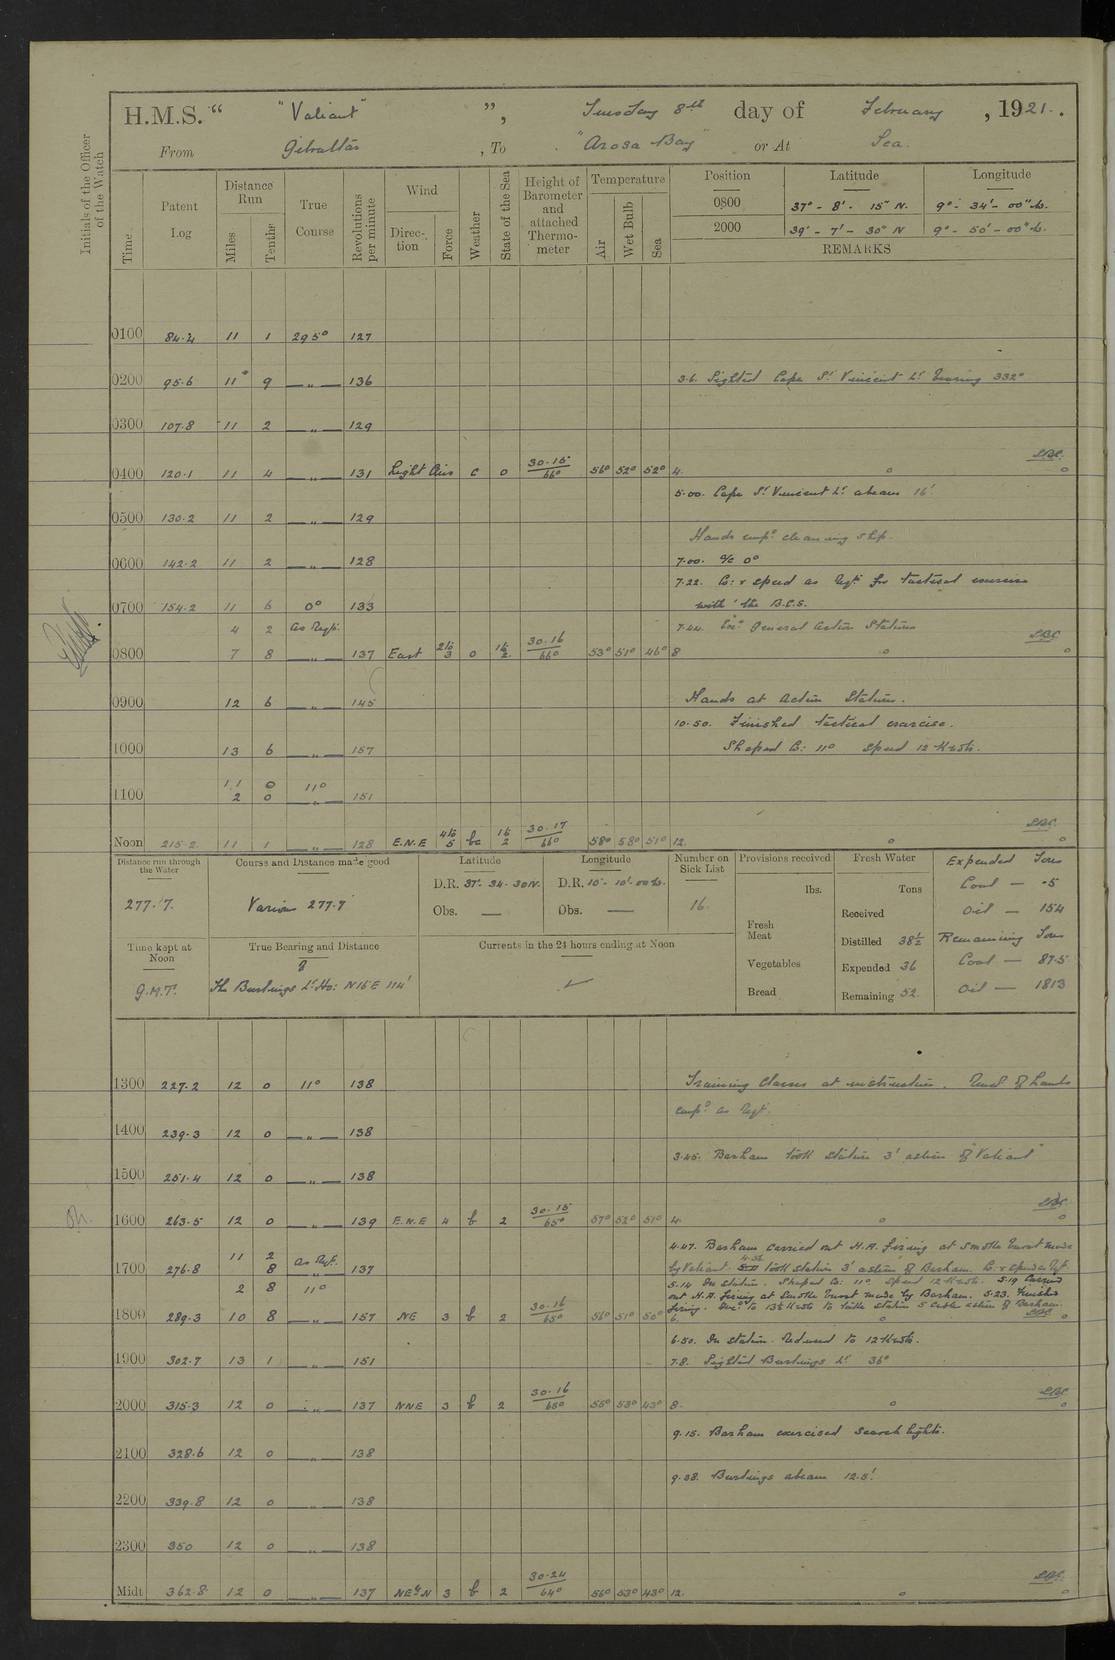 H.M.S. “ "Valiant" ”, Tuesday 8th day of February, 1921.
From Gibraltar, To "Arosa Bay" or At Sea.
Initials of the Officer of the Watch
Time
Patent Log
Distance Run
Miles
Tenths
True Course
Revolutions per minute
Wind
Direction
Force
Weather
State of the Sea
Height of Barometer and attached Thermometer
Temperature
Air
Wet Bulb
Sea
Position Latitude Longitude
0800 37° - 8' - 15" N. 9° - 34' - 00" W.
2000 39' - 7' - 30" N 9° - 50' - 00" W.
REMARKS
0100 84.4 11 1 295° 127
0200 95.6 11 9 —„— 136 3.6. Sighted Cape St Vincent Lt bearing 332°
0300 107.8 11 2 —„— 129
0400 120.1 11 4 —„— 131 Light Airs c 0 30.15/66° 56° 52° 52° 4.
5.00. Cape St Vincent Lt abeam 16'
0500 130.2 11 2 —„— 129
Hands empd cleaning ship.
0600 142.2 11 2 —„— 128 7.00. a/c 0°
7.22. Co: & speed as Reqt for tactical exercise
0700 154.2 11 6 0° 133 with the B.C.S.
4 2 as Reqt. 7.44. General Action Stations
0800 7 8 —„— 137 East 2 to 3 0 1 to 2 30.16/66° 53° 51° 46° 8
0900 12 6 —„— 145 Hands at Action Stations.
10.50. Finished tactical exercise.
1000 13 6 —„— 157 Shaped Co: 11° speed 12 Knots.
11 0 11°
1100 2 0 —„— 151
Noon 215.2 11 1 —„— 128 E.N.E 4 to 5 bc 1 to 2 30.17/66° 58° 58° 51° 12.
Distance run through the Water
277.7.
Course and Distance made good
Various 277.7
Latitude
D.R. 37. 34. 30 N.
Obs. —
Longitude
D.R. 10° - 10' - 00 W.
Obs. —
Number on Sick List
16.
Provisions received
lbs.
Fresh Meat
Vegetables
Bread
Fresh Water
Tons
Received
Distilled 38½
Expended 36
Remaining 52.
Expended Tons
Coal — .5
Oil — 154
Remaining Tons
Coal — 87.5
Oil — 1813
Time kept at Noon
G.M.T.
True Bearing and Distance
of
The Burlings Lt Ho: N 16 E 114'
Currents in the 24 hours ending at Noon
1300 227.2 12 0 11° 138 Training Classes at instruction. Rem of hands
empd as Reqt.
1400 239.3 12 0 —„— 138
3.45. Barham took station 3' astern of "Valiant"
1500 251.4 12 0 —„— 138
1600 263.5 12 0 —„— 139 E.N.E 4 b 2 30.15/65° 57° 52° 51° 4.
4.47. Barham carried out H.A. firing at smoke burst made
11 2 as Reqt. by Valiant. 4.56 took station 3' astern of Barham. Co: & speed as Reqt.
1700 276.8 8 137
2 8 11° 5.14 In station. Shaped Co: 11° speed 12 Knots. 5.19 Carried
out H.A. firing at smoke burst made by Barham. 5.23. Finished
firing. Incd to 13½ Knots to take station 5 cables astern of Barham.
1800 289.3 10 8 —„— 157 NE 3 b 2 30.16/65° 56° 51° 50° 6.
6.50. In station. Reduced to 12 Knots.
1900 302.7 13 1 —„— 151 7.8. Sighted Burlings Lt 36°
2000 315.3 12 0 —„— 137 NNE 3 b 2 30.16/65° 55° 53° 43° 8.
9.15. Barham exercised searchlights.
2100 328.6 12 0 138
9.38. Burlings abeam 12.5'.
2200 339.8 12 0 —„— 138
2300 350 12 0 —„— 138
Midt 362.8 12 0 137 NE by N 3 b 2 30.24/64° 56° 53° 43° 12.